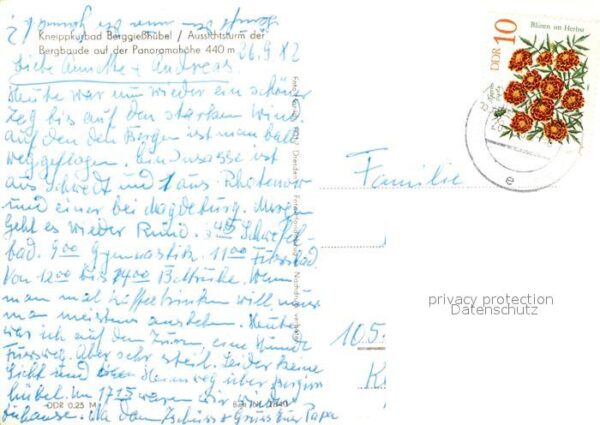 Kneippkurbad Berggießhübel / Aussichtsturm der
Bergbaude auf der Panoramahöhe 440 m
26.9.82
Liebe Annette + Andreas.
Heute war nun wieder ein schöner
Tag bis auf den starken Wind
auf den Bergen ist man bald
weggeflogen. ist
aus Schwedt und 1 aus Rhatenow
und einer bei Magdeburg. Morgen
geht es wieder Rund. 3 45 Schwefel-
bad. 9 00 Gymnastik. 11 00 Fussbad
Von 12 00 bis 14 00 Bettruhe. Wenn
man mal Kaffeetrinken will muss
man meistens anstehen. Heute
war ich auf den eine Stunde
Fussweg. Aber sehr steil. Leider keine
Sicht und Heimweg über
hübel. Um 17 15 waren wir wieder
zuhause. Na dann Tschüss + Gruss Eur Papa
DDR 0,25 M
Familie
10 5
K
DDR 10
Blüten im Herbst
e
privacy protection
Datenschutz